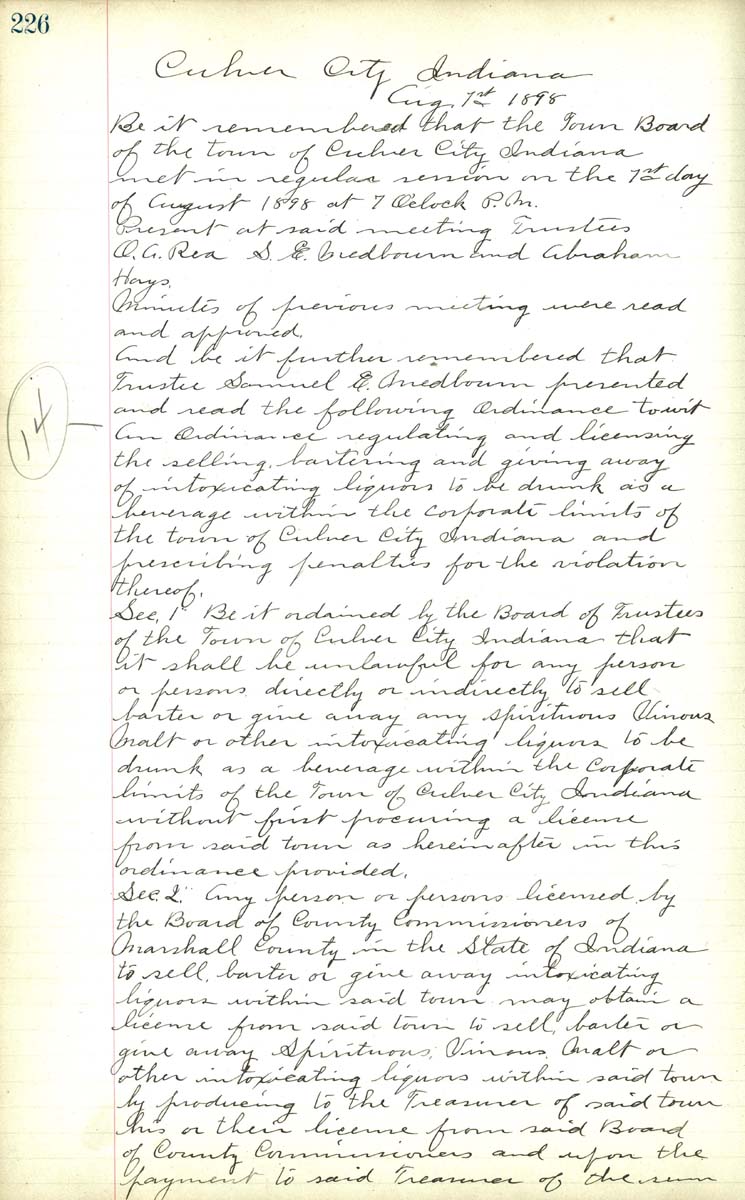 226
Culver City Indiana
Aug 1st 1898
Be it remembered that the Town Board
of the town of Culver City Indiana
met in regular session on the 1st day
of August 1898 at 7 Oclock P.M.
Present at said meeting Trustees
O. A. Rea S. E. Medbourn and Abraham
Hays.
Minutes of previous meeting were read
and approved.
And be it further remembered that
Trustee Samuel E. Medbourn presented
and read the following Ordinance towit
14
An Ordinance regulating and licensing
the selling, bartering and giving away
of intoxicating liquors to be drunk as a
beverage within the corporate limits of
the town of Culver City Indiana and
prescribing penalties for the violation
thereof.
Sec. 1" Be it ordained by the Board of Trustees
of the Town of Culver City Indiana that
it shall be unlawful for any person
or persons directly or indirectly to sell
barter or give away any spirituous Vinous
Malt or other intoxicating liquors to be
drunk as a beverage within the Corporate
limits of the Town of Culver City Indiana
without first procuring a license
from said town as hereinafter in this
ordinance provided.
Sec. 2" Any person or persons licensed by
the Board of County Commissioners of
Marshall County in the State of Indiana
to sell, barter or give away intoxicating
liquors within said town may obtain a
license from said town to sell, barter or
give away Spirituous, Vinous, Malt or
other intoxicating liquors within said town
by producing to the Treasurer of said town
his or their license from said Board
of County Commissioners and upon the
payment to said Treasurer of the sum